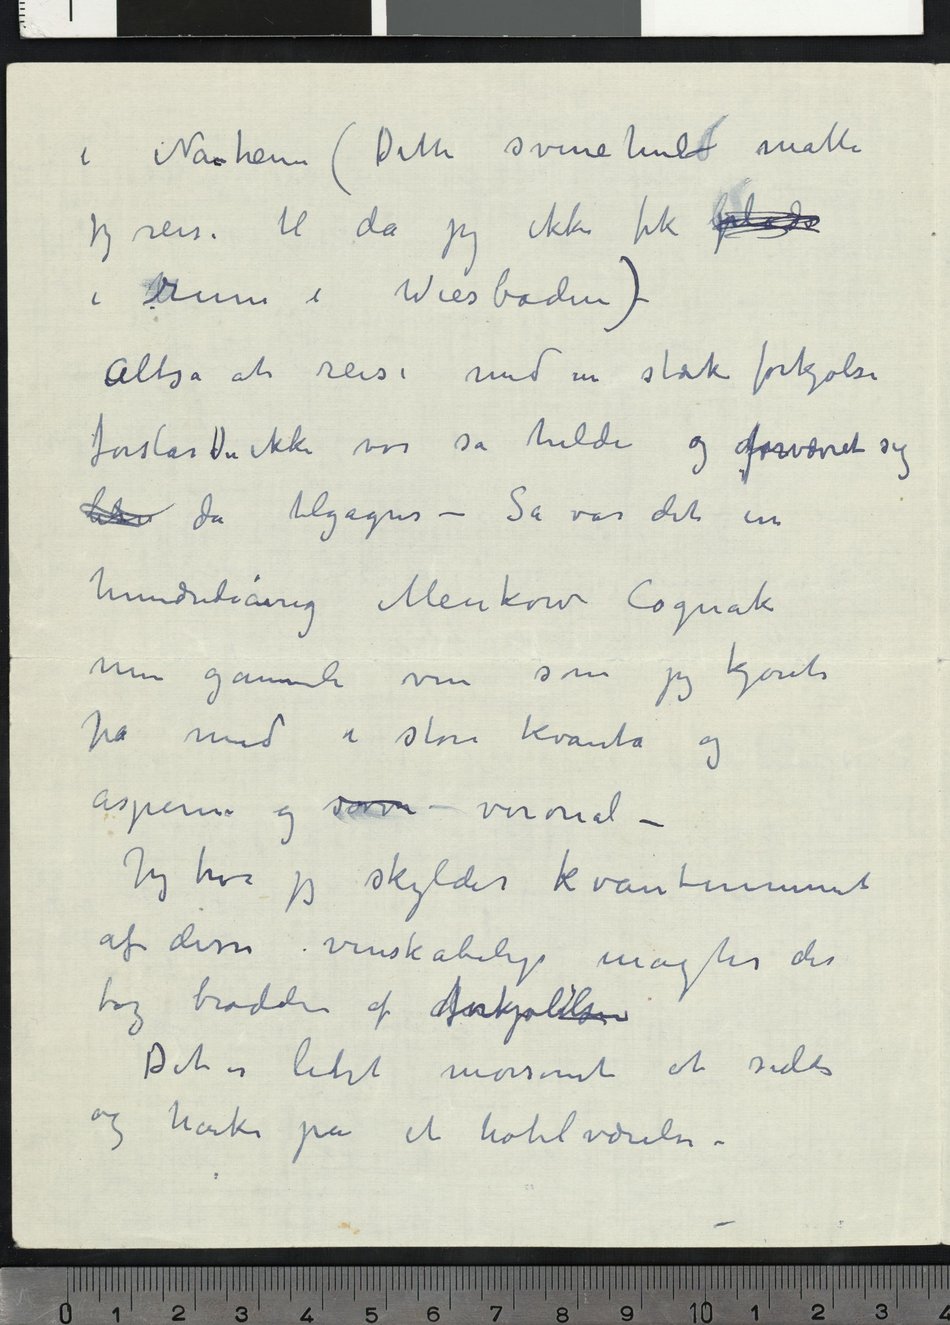 i Nauheim (Dette svinehul måtte
jeg reise til da jeg ikke fik
i rum i Wiesbaden) –
Altså at reise med en stærk forkjølse
forstår Du ikke var så heldi og forværret sig
da tilgagns – Så var det en
hundrediårig Meukow Cognak
min gammle ven som jeg kjørte
på med i store kvanta og
asperin og – veronal –
Jeg tror jeg skylder kvantummet
af disse venskabelige magter der
tog brodden af forkjølelsen
Det er lidet morsomt at sidde
og harke på et hotelværelse –
0 1 2 3 4 5 6 7 8 9 10 1 2 3 4